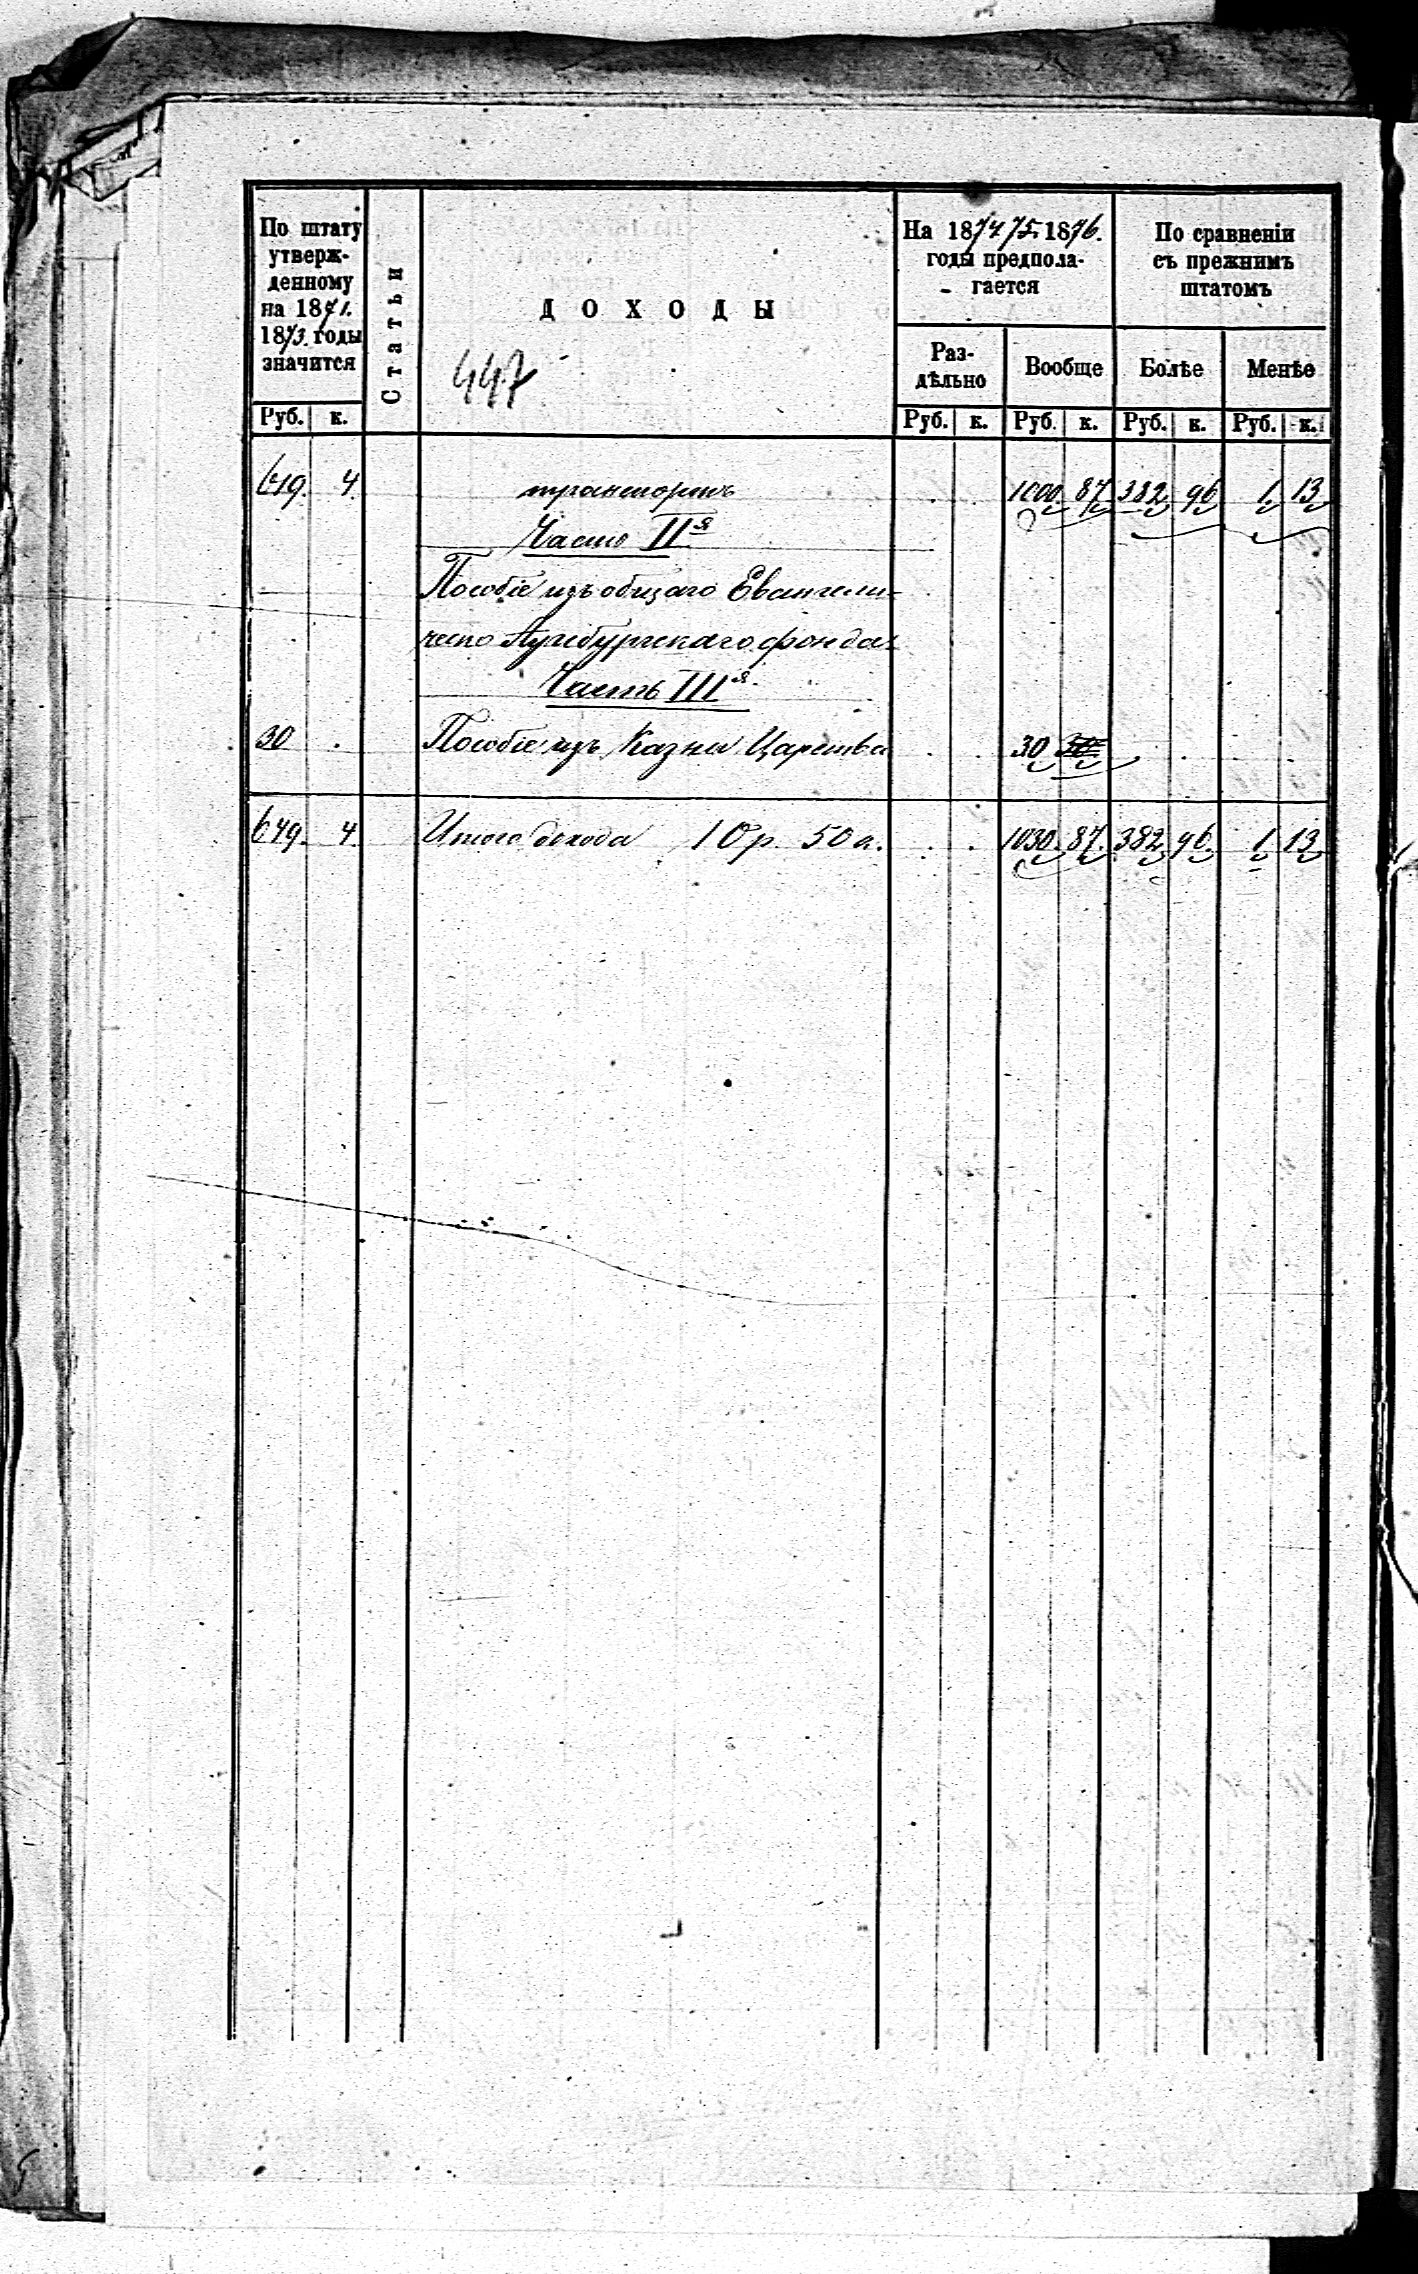 По штату
утверж-
денному
на 1871.
1873. годы
значится
Руб. к.
Статьи
ДОХОДЫ
447
На 1874 75 1876.
годы предпола-
гается
Раз-
дѣльно
Вообще
Руб. к. Руб. к.
По сравненію
съ прежнимъ
штатомъ
Болѣе Менѣе
Руб. к. Руб. к.
619. 4. транспортъ 1000. 87. 382 96 1. 13
Часть IIя
Пособіе изъ общаго Евангели-
ческо Аугсбургскаго фонда
Часть IIIя
30 . Пособіе изъ Казны Царства 30
649. 4 Итого дохода 10 р. 50 к. 1030. 87. 382 96. 1 13